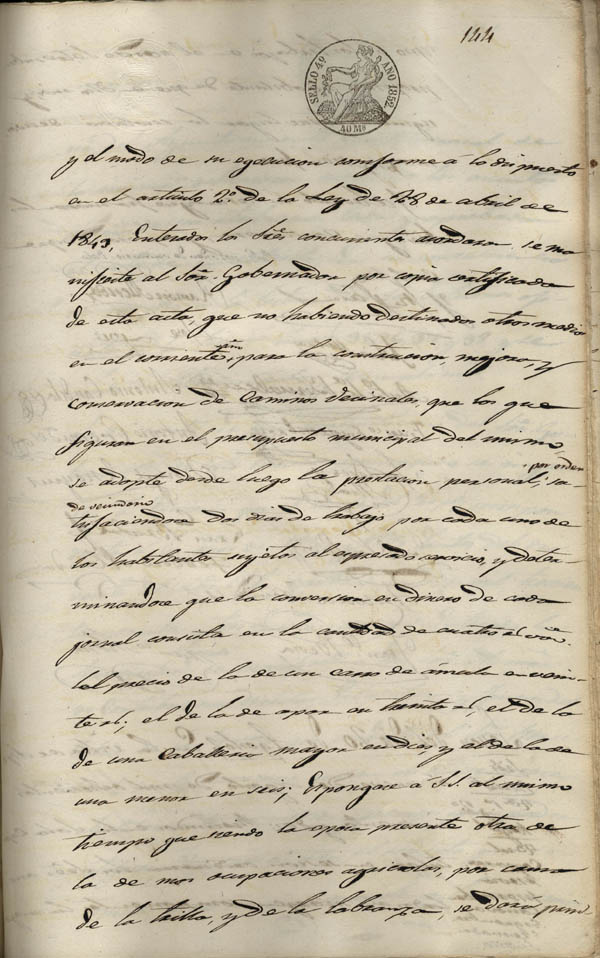 144
SELLO 4º AÑO 1852.
40 Ms
y el modo de su egecucion comforme á lo dispuesto
en el articulo 2º de la Ley de 28 de abril de
1849, Enterados los Sres concurrentes acordaron se ma
nifieste al Sor. Gobernador por copia certificada
de esta acta, que no habiendo destinados otros medios
en el corriente año, para la construccion, mejora, y
conservacion de Caminos vecinales, que los que
figuran en el presupuesto municipal del mismo,
se adopte desde luego la prestacion personal; sa- por orden
de vecindario
tisfaciendose dos dias de trabajo por cada uno de
los habitantes sujetos al espresado servicio, y deter-
minandose que la conversion en dinero de cada
jornal consista en la cantidad de cuatro rs von.
el precio de la de un carro de ámula en vein-
te rs; el de la de a par en treinta rs, el de la
de una Caballeria mayor en diez y el de la de
una menor en seis; Espongase á S.S. al mismo
tiempo que siendo la epoca presente otra de
la de mas ocupaciones agricolas, por causa
de la trilla, y de la labranza, se dará prin-